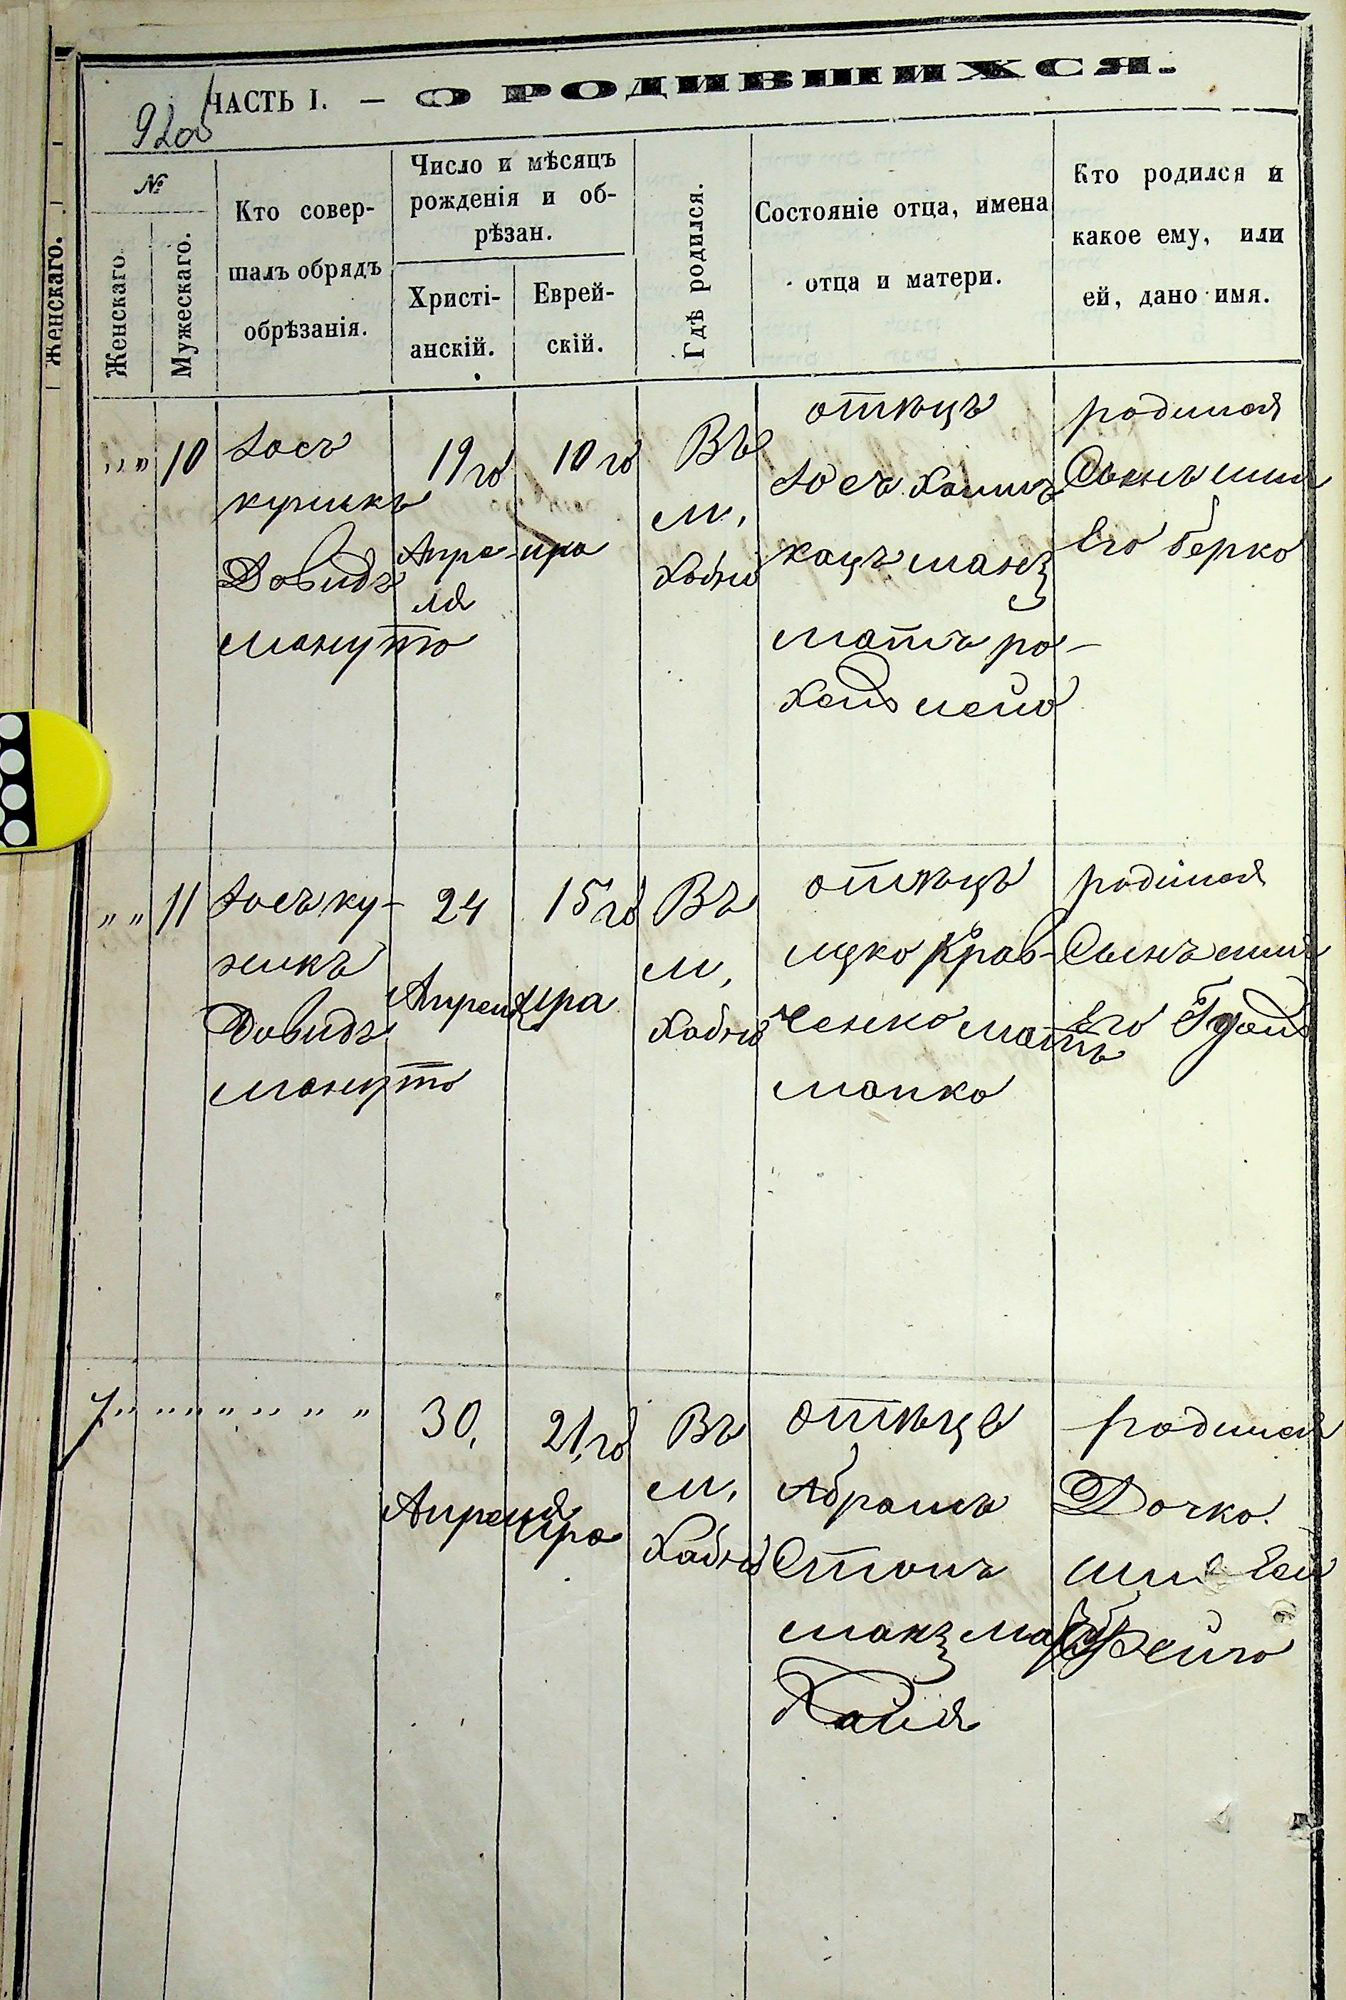 92об
ЧАСТЬ I. — О РОДИВШИХСЯ.
№
Женскаго.
Мужескаго.
Кто совер-
шалъ обрядъ
обрѣзанія.
Число и мѣсяцъ
рожденія и об-
рѣзан.
Христі-
анскій.
Еврей-
скій.
Гдѣ родился.
Состояніе отца, имена
отца и матери.
Кто родился и
какое ему, или
ей, дано имя.
Женскаго.
" " 10
Іосъ
Довидъ
19го
Апре-
ля
10го
ира
Въ
м.
Хабно
отѣцъ
Іосъ Хаимъ
кацъманъ
матъ ро-
родился
Сынъ имя
Его берко
" " 11
Іосъ ку-
жикъ
Довидъ
24
Апреля
15го
ира
Въ
м,
Хабно
отѣцъ
ицко Крав-
ченко матъ
малко
родился
Сынъ имя
Его
7 " " " " " " "
30,
Апреля
21,го
ира
Въ
м,
Хабно
отѣцъ
Абрамъ
манъ
Хаія
родилася
Дочко
имя Ей
Фейго